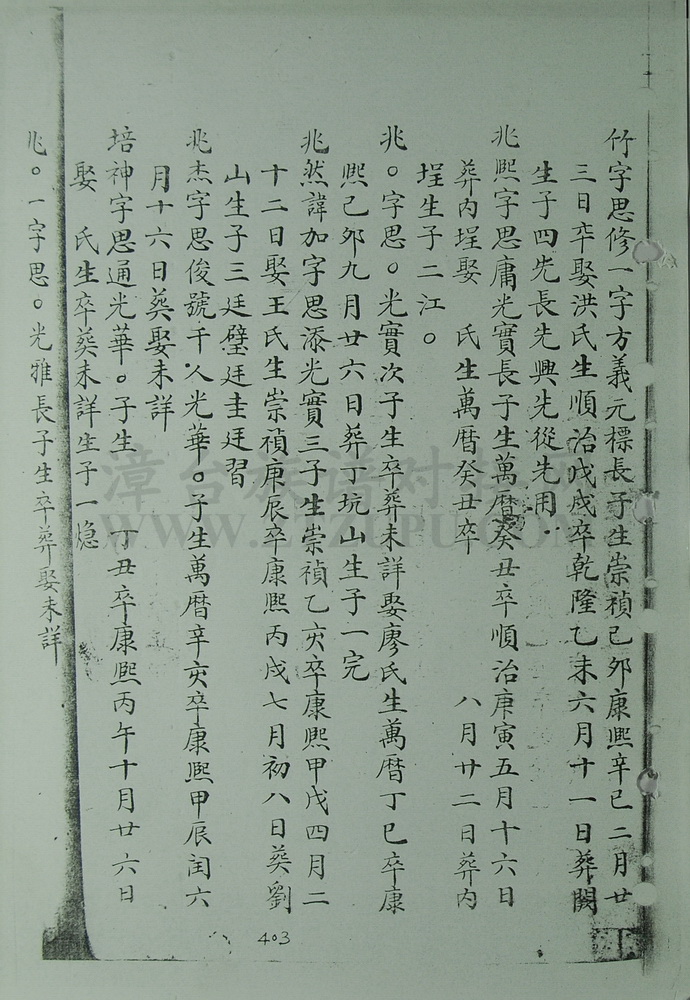 竹字思修一字方義元標長子生崇禎己夘康熙辛巳二月廿
三日卒娶洪氏生順治戊戌卒乾隆乙未六月十一日葬闕
生子四先長先興先從先用
兆熙字思庸光實長子生萬曆癸丑卒順治庚寅五月十六日
葬内埕娶 氏生萬曆癸丑卒 八月廿二日葬内
埕生子二江○
兆○字思○光實次子生卒葬未詳娶廖氏生萬曆丁巳卒康
熙己夘九月廿六日葬丁坑山生子一完
兆然諱加字思添光實三子生崇禎乙亥卒康熙甲戊四月二
十二日娶王氏生崇禎庚辰卒康熙丙戍七月初八日葵劉
山生子三廷璧廷圭廷習
兆杰字思俊號千人光華○子生萬曆辛亥卒康熙甲辰閏六
月十六日葵娶未詳
培神字思通光華○子生 丁丑卒康熙丙午十月廿六日
娶 氏生卒葵未詳生子一熄
兆○一字思○光雅長子生卒葬娶未詳
403
漳台族谱对接
WWW.ZTZUPU.COM